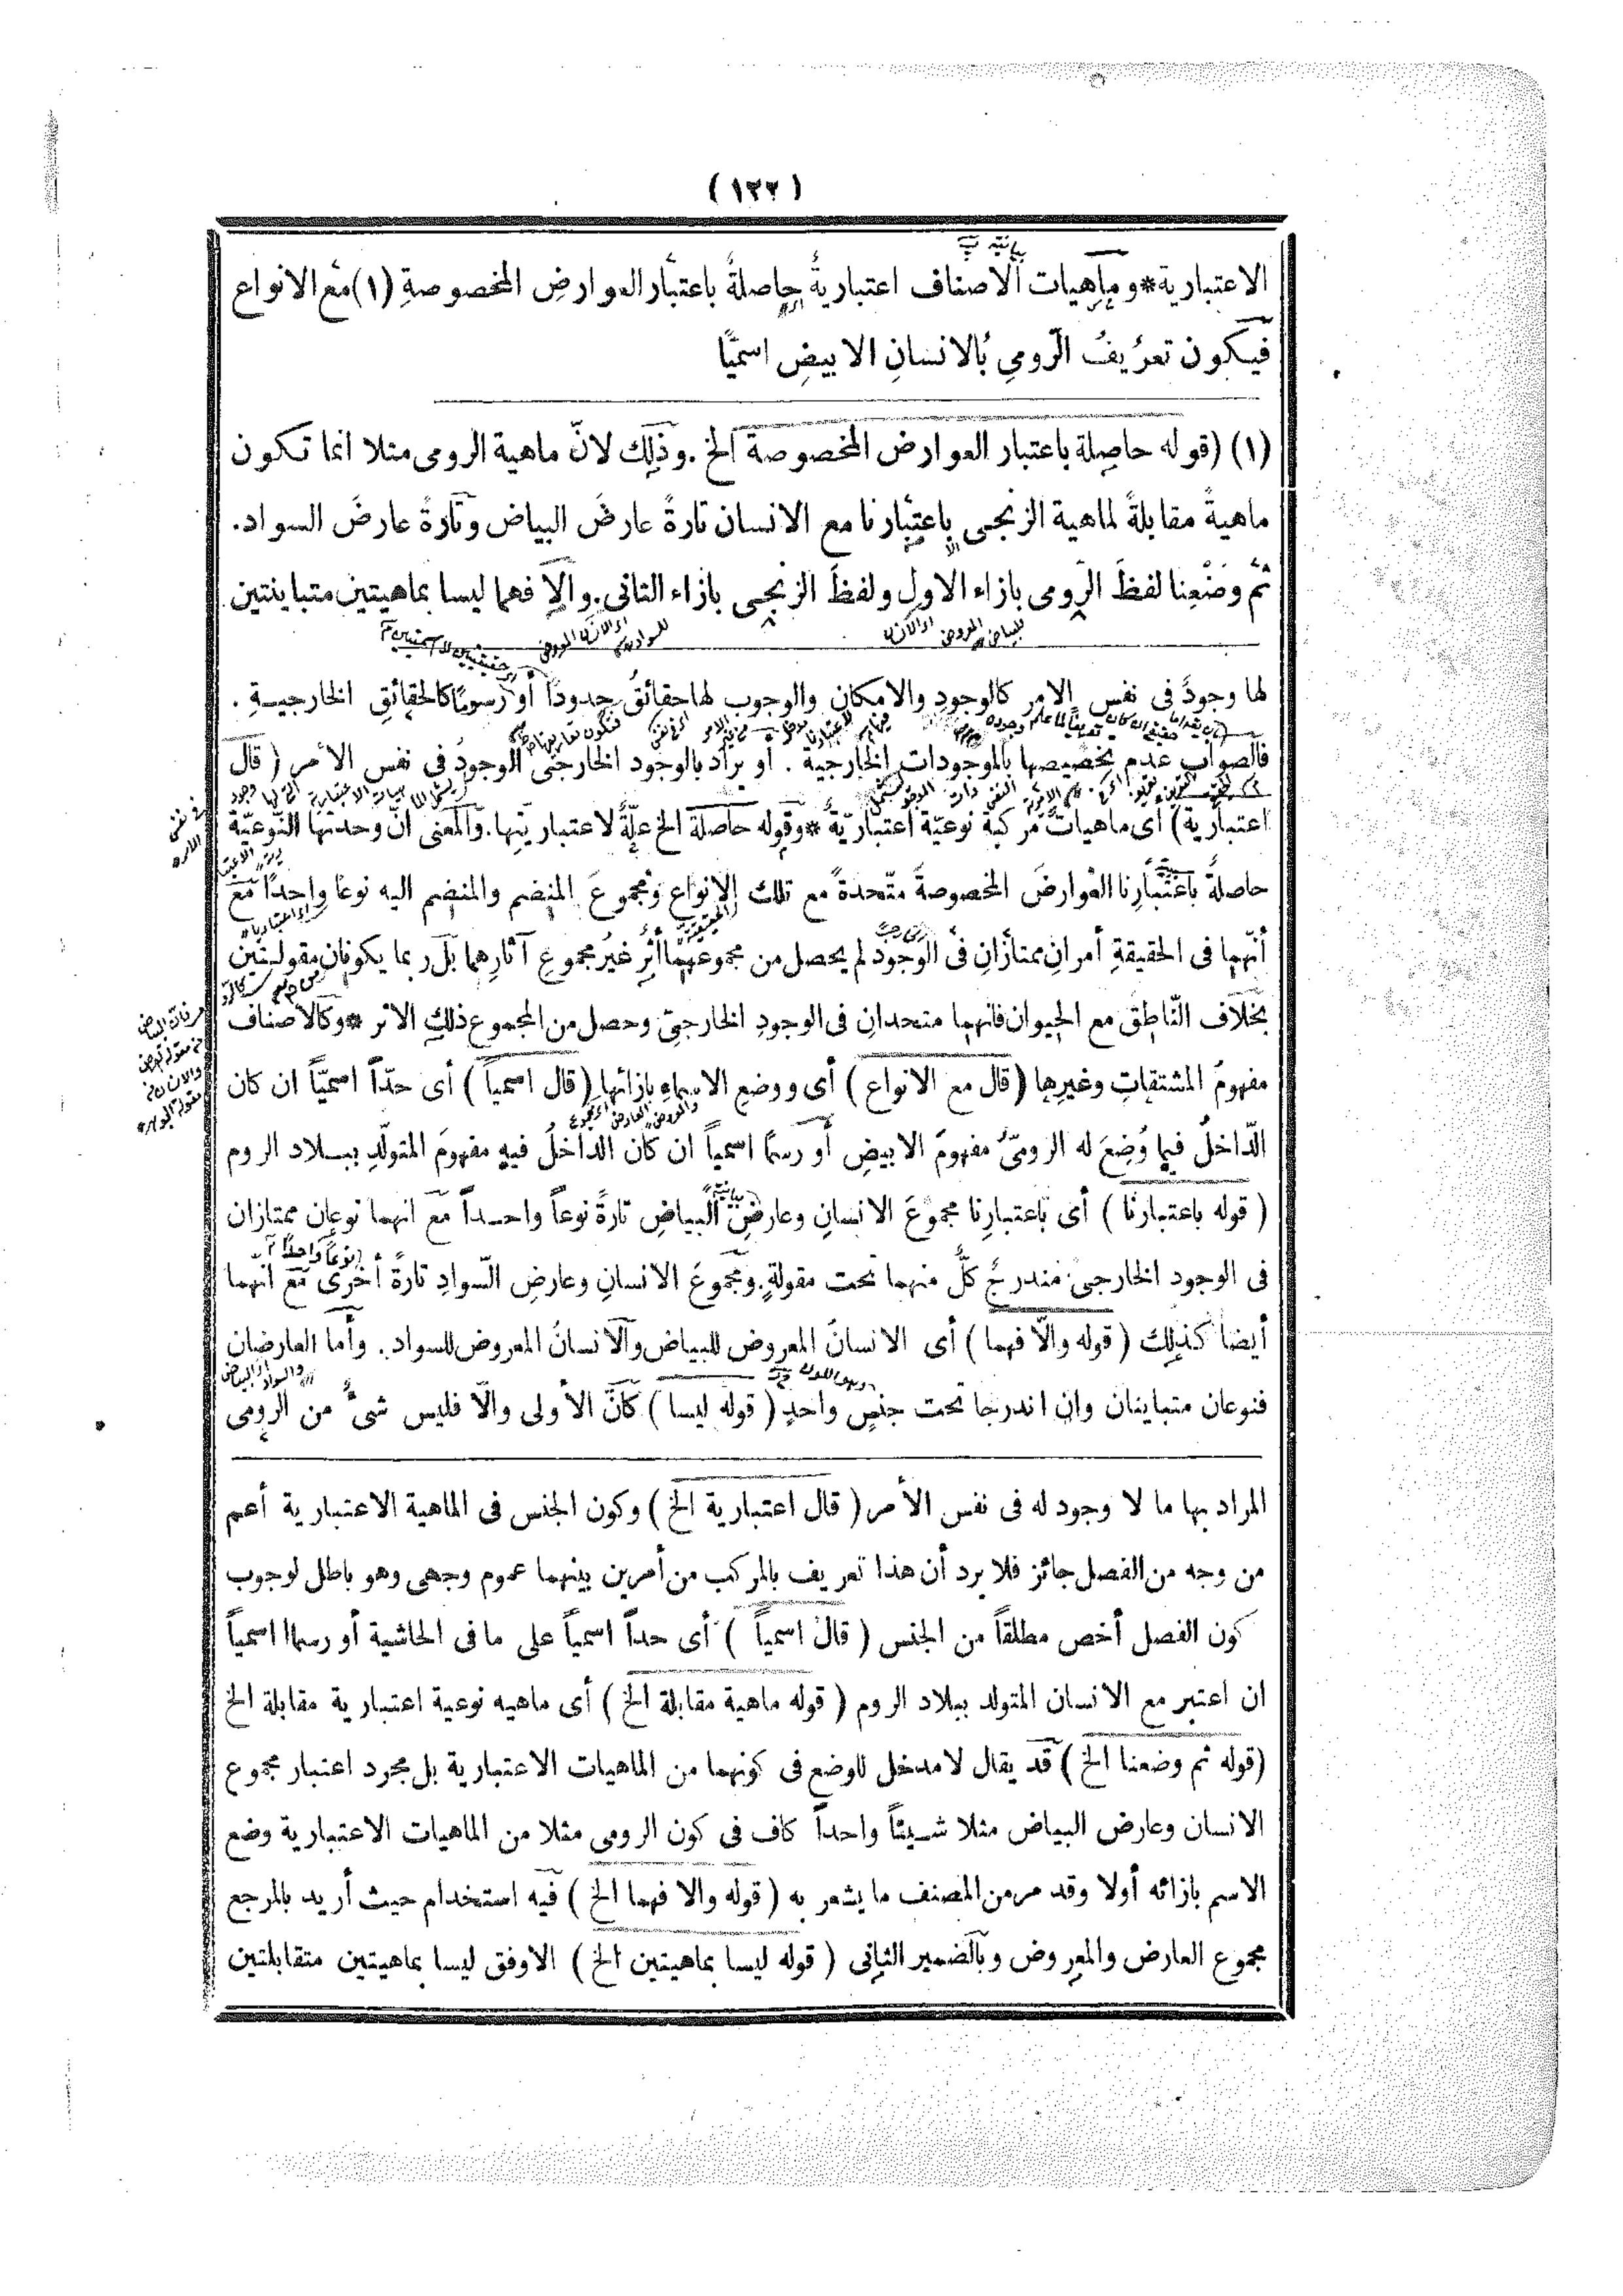 (١٢٢)
الاعتبارية*وماهيات الاصناف اعتباريةُ حاصلةُ باعتبار العوارضِ المخصوصةِ (١) مع الانواع
فيكون تعريفُ الرومىِ بالانسانِ الابيضِ اسميًّا
(١) (قوله حاصلة باعتبار العوارض المخصوصة الخ . وذلك لانّ ماهية الرومى مثلا انما تكون
ماهيةً مقابلةً لماهية الزنجى باعتبارنا مع الانسان تارةً عارضَ البياض وتارةً عارضَ السواد.
ثمّ وضْعِنا لفظَ الرومى بازاء الاول ولفظَ الزنجى بازاء الثانى. والا فهما ليسا بماهيتين متباينتين
لها وجودٌ فى نفس الامر كالوجود والامكان والوجوب لها حقائقُ حدودًا أو رسومًا كالحقائقِ الخارجيةِ .
فالصواب عدم تخصيصها بالموجودات الخارجية . أو يراد بالوجود الخارجى الوجودُ فى نفس الأمر ( قال
اعتبارية) أى ماهياتٌ مركبة نوعيّة اعتباريّةٌ *وقوله حاصلة الخ علّةٌ لاعتباريّتها. والمعنى أنّ وحدتها النّوعيّة
حاصلةٌ باعتبارِنا العوارضَ المخصوصةَ متّحدةً مع تلك الانواع ومجموعَ المنضم والمنضم اليه نوعًا واحدًا مع
أنّهما فى الحقيقةِ أمرانِ ممتازانِ فى الوجود لم يحصل من مجموعهما أثرٌ غيرُ مجموعِ آثارِهما بل ربما يكونان مقولتين
بخلاف النّاطق مع الحيوان فانهما متحدانِ فى الوجودِ الخارجىّ وحصل من المجموع ذلك الاثر *وكالأصناف
مفهومُ المشتقاتِ وغيرِها (قال مع الانواع) أى ووضعِ الاسماءِ بازائها (قال اسمياً) أى حدّاً اسميّاً ان كان
الدّاخلُ فيما وُضِعَ له الرومىُّ مفهومَ الابيضِ أو رسمًا اسمياً ان كان الداخلُ فيهِ مفهومَ المتولّدِ ببلاد الروم
( قوله باعتبارنا ) أى باعتبارِنا مجموعَ الانسانِ وعارضِ البياضِ تارةً نوعاً واحداً مع انهما نوعان ممتازان
فى الوجود الخارجىّ مندرجٌ كلٌّ منهما تحت مقولةٍ. ومجموعَ الانسانِ وعارضِ السّوادِ تارةً أخرى مع انهما
أيضا كذلك (قوله والّا فهما) أى الانسانَ المعروض للبياض والانسانُ المعروض للسواد. وأما العارضان
فنوعان متباينان وان اندرجا تحت جنسٍ واحدٍ (قوله ليسا) كانّ الأولى والّا فليس شىءٌ من الرومى
المراد بها ما لا وجود له فى نفس الأمر ( قال اعتبارية الخ ) وكون الجنس فى الماهية الاعتبارية أعم
من وجه من الفصل جائز فلا يرد أن هذا تعريف بالمركب من أمرين بينهما عموم وجهى وهو باطل لوجوب
كون الفصل أخص مطلقاً من الجنس ( قال اسمياً ) أى حداً اسمياً على ما فى الحاشية أو رسما اسمياً
ان اعتبر مع الانسان المتولد ببلاد الروم ( قوله ماهية مقابلة الخ ) أى ماهيه نوعية اعتبارية مقابلة الخ
(قوله ثم وضعنا الخ ) قد يقال لامدخل للوضع فى كونهما من الماهيات الاعتبارية بل مجرد اعتبار مجموع
الانسان وعارض البياض مثلا شيئاً واحداً كاف فى كون الرومى مثلا من الماهيات الاعتبارية وضع
الاسم بازائه أولا وقد مر من المصنف ما يشعر به ( قوله والا فهما الخ ) فيه استخدام حيث أريد بالمرجع
مجموع العارض والمعروض وبالضمير الثانى ( قوله ليسا بماهيتين الخ ) الاوفق ليسا بماهيتين متقابلتين